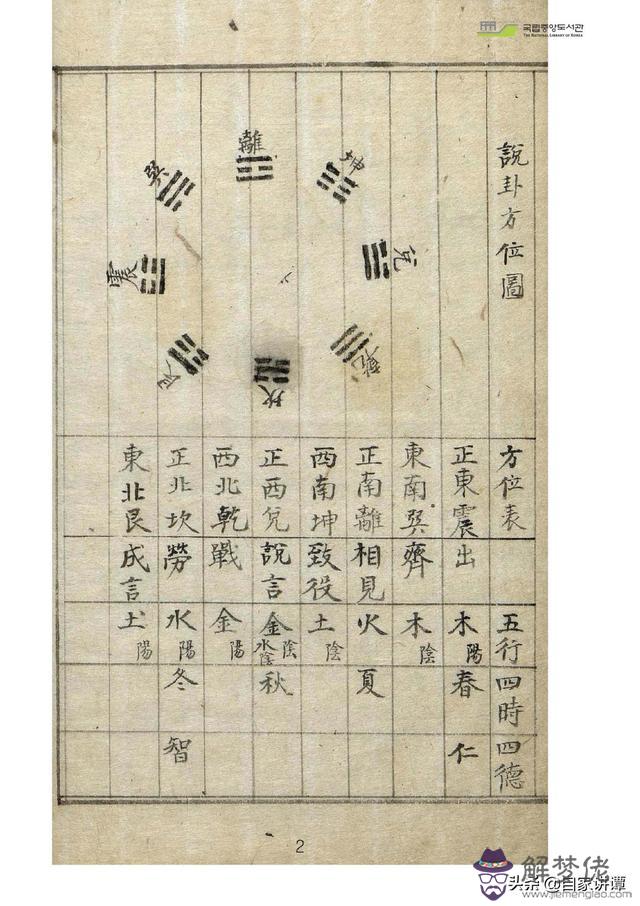 국립중앙도서관
THE NATIONAL LIBRARY OF KOREA
說卦方位圖
離
坤
兌
乾
坎
艮
震
巽
方位表 五行 四時 四德
正東震 出 木陽 春 仁
東南巽 齊 木陰
正南離 相見 火 夏
西南坤 致役 土陰
正西兌 說言 金陰水陰 秋
西北乾 戰 金陽
正北坎 勞 水陽 冬 智
東北艮 成言 土陽
2
解梦佬
头条 @自家讲谭
www.jiemenglao.com